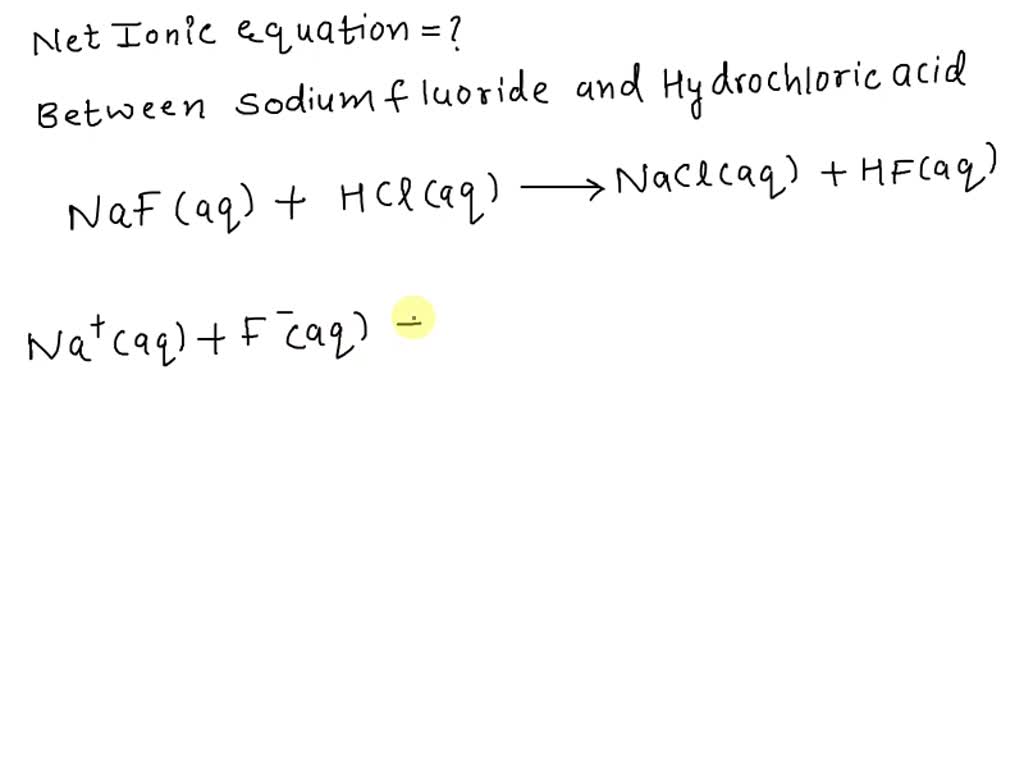 Net Ionic equation = ?
Between sodium fluoride and Hydrochloric acid
NaF (aq) + HCl (aq) ⟶ NaCl (aq) + HF (aq)
Na⁺ (aq) + F⁻ (aq) +